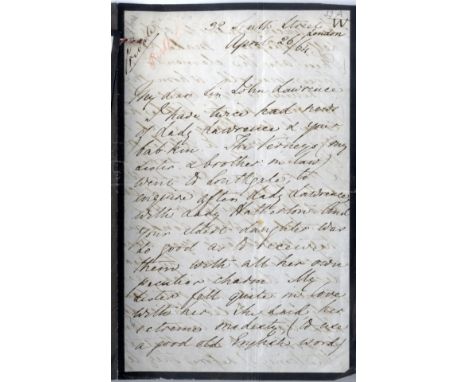 W
32 South Street
London
April 26/64
My dear Sir John Lawrence
I have twice had news
of Lady Lawrence & your
babkin. The Verneys (my
sister & brother in law)
went to Southgate, to
enquire after Lady Lawrence,
with Lady Hatherton. And
your eldest daughter was
so good as to receive
them with all her own
peculiar charm. My
sister fell quite in love
with her. She said her
extreme modesty (to use
a good old English word)